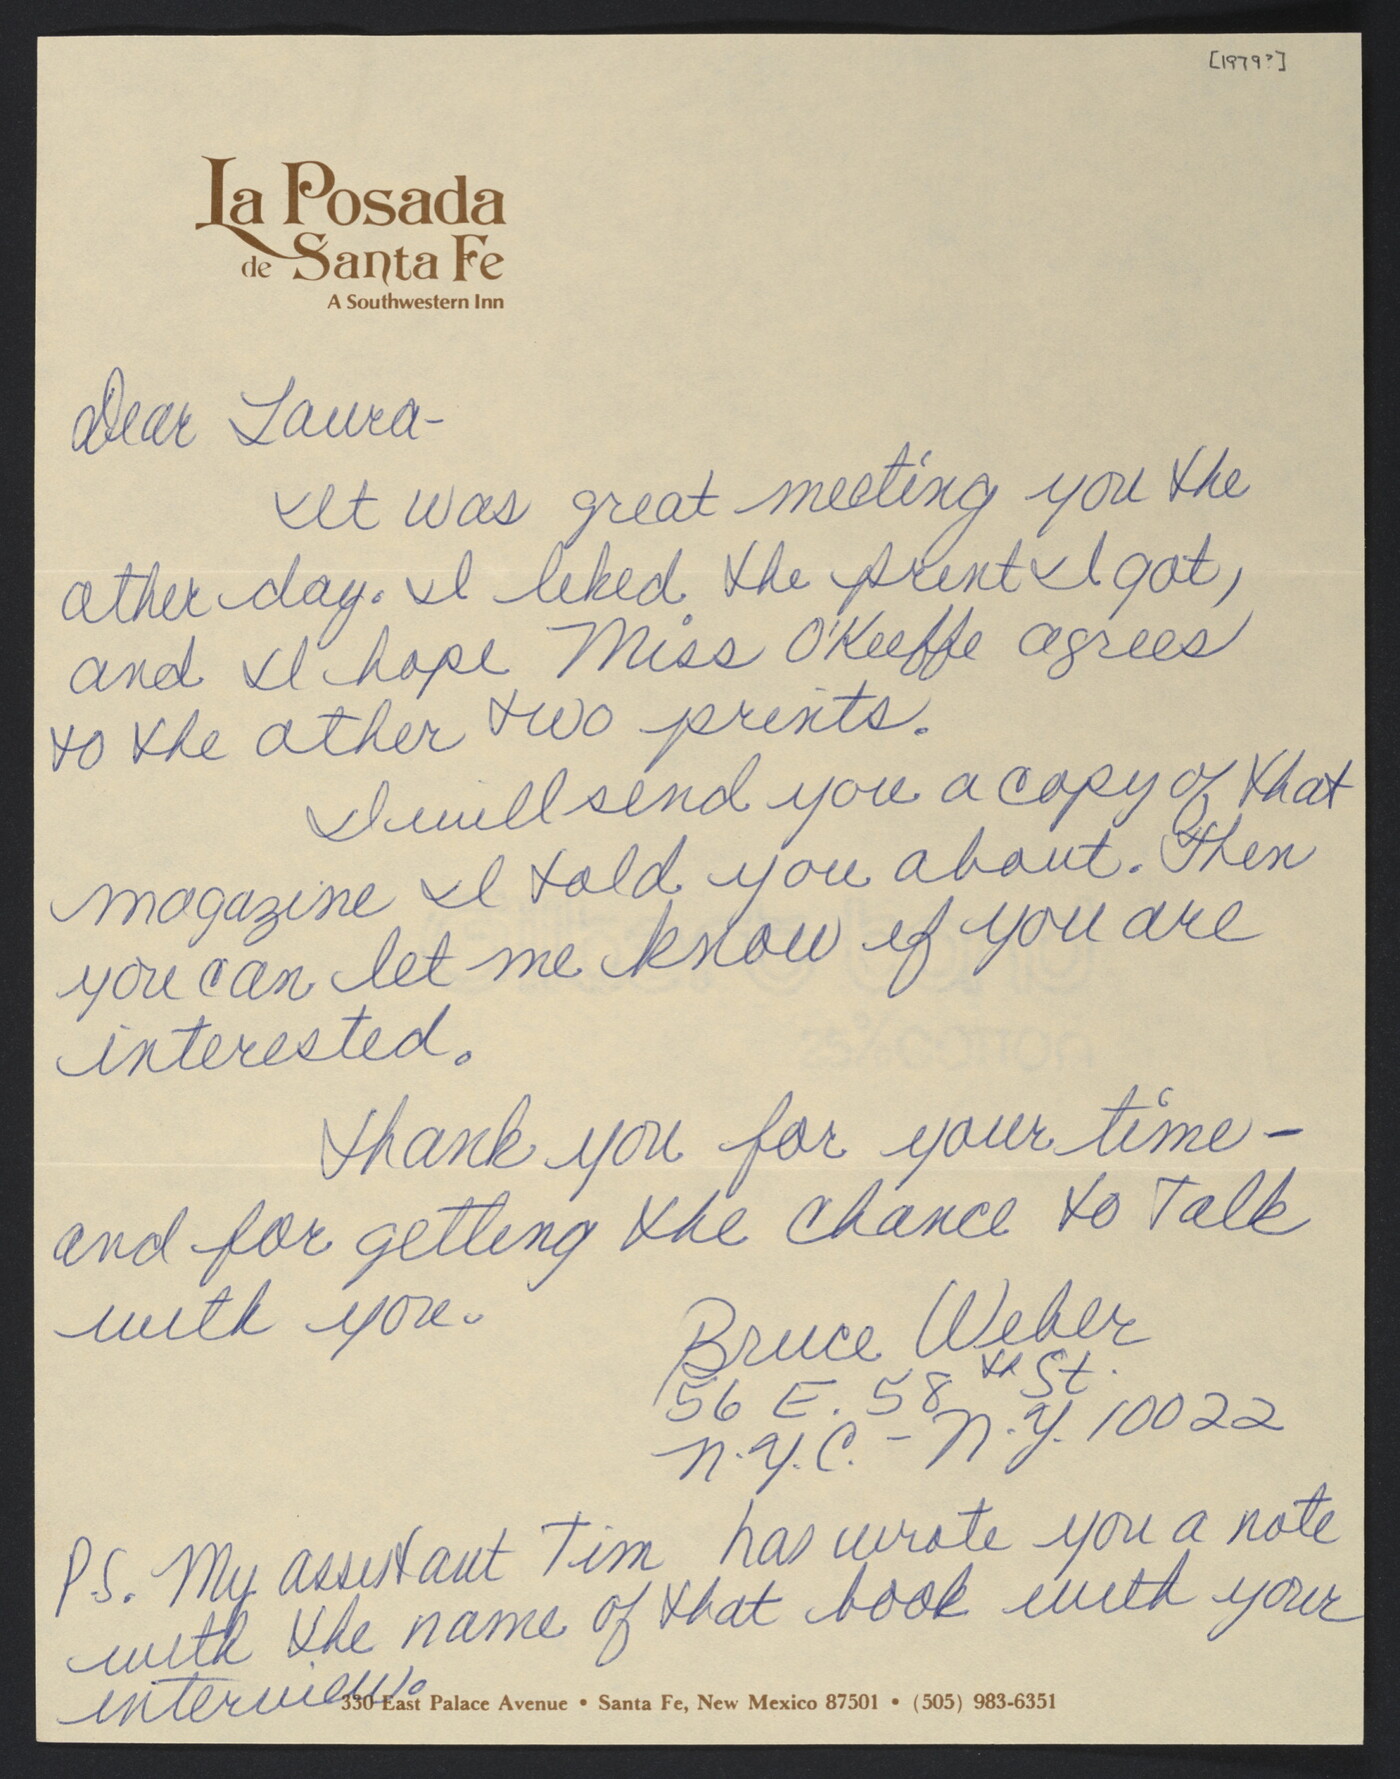 [1979?]
La Posada
de Santa Fe
A Southwestern Inn
Dear Laura-
It was great meeting you the
other day. I liked the print I got,
and I hope Miss O'Keeffe agrees
to the other two prints.
I will send you a copy of that
magazine I told you about. Then
you can let me know if you are
interested.
Thank you for your time -
and for getting the chance to talk
with you.
Bruce Weber
56 E. 58th St.
N.Y.C. - N.Y. 10022
P.S. My assistant Tim has wrote you a note
with the name of that book with your
interview.
330 East Palace Avenue • Santa Fe, New Mexico 87501 • (505) 983-6351